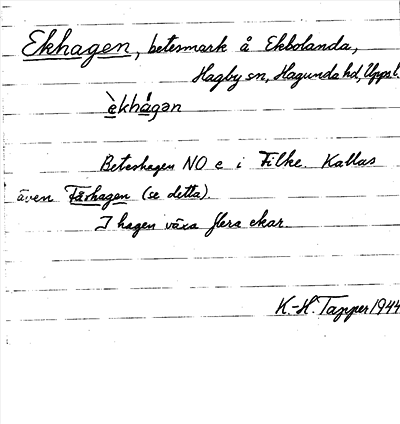 Ekhagen, betesmark å Ekbolanda,
Hagby sn, Hagunda hd, Uppsl.
èkhågən
Beteshagen NO e i Filke. Kallas
även Fårhagen (se detta).
I hagen växa flera ekar.
K.-H. Tapper 1944